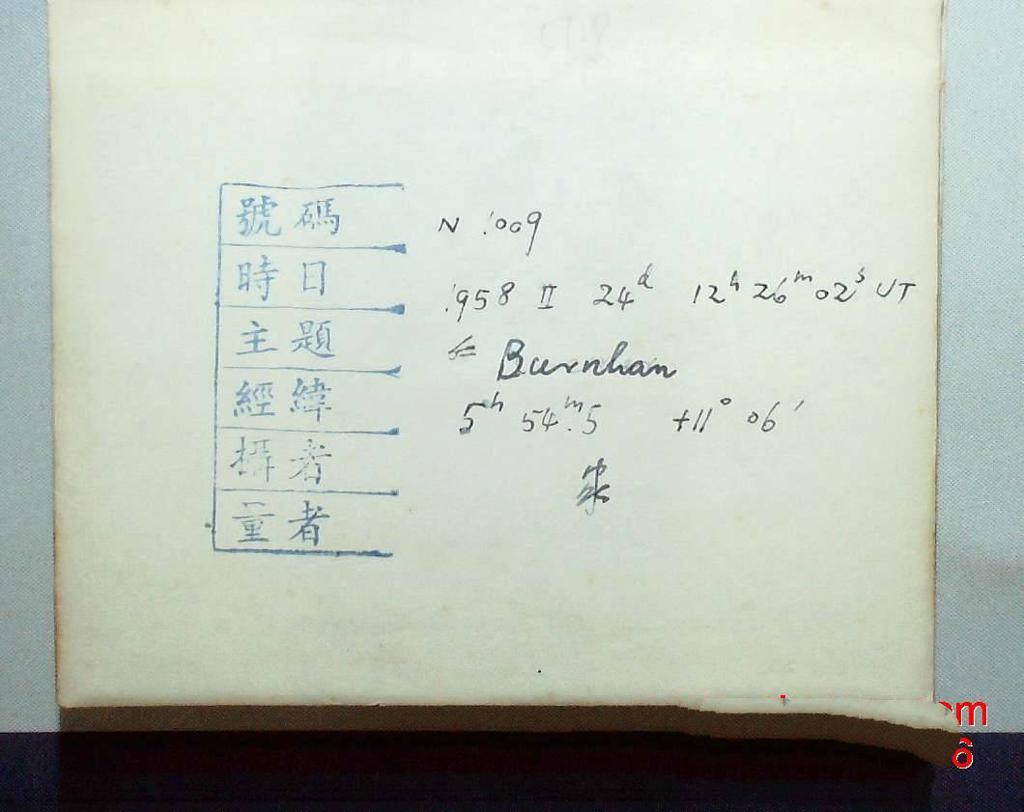 號碼 N 1009
時日 1958 II 24ᵈ 12ʰ 26ᵐ 02ˢ UT
主題 Burnhan
經緯 5ʰ 54ᵐ.5 +11° 06′
攝者
量者